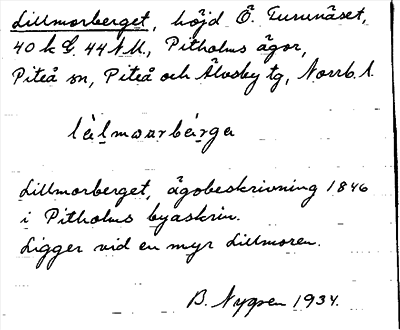 Lillmorberget, höjd Ö. Turunäset,
40 k G. 44 N M, Pitholms ägor,
Piteå sn, Piteå och Älvsby tg, Norrb. l.
Lillmorberget, ägobeskrivning 1846
i Pitholms byaskrin.
Ligger vid en myr Lillmoren.
B. Nygren 1934.